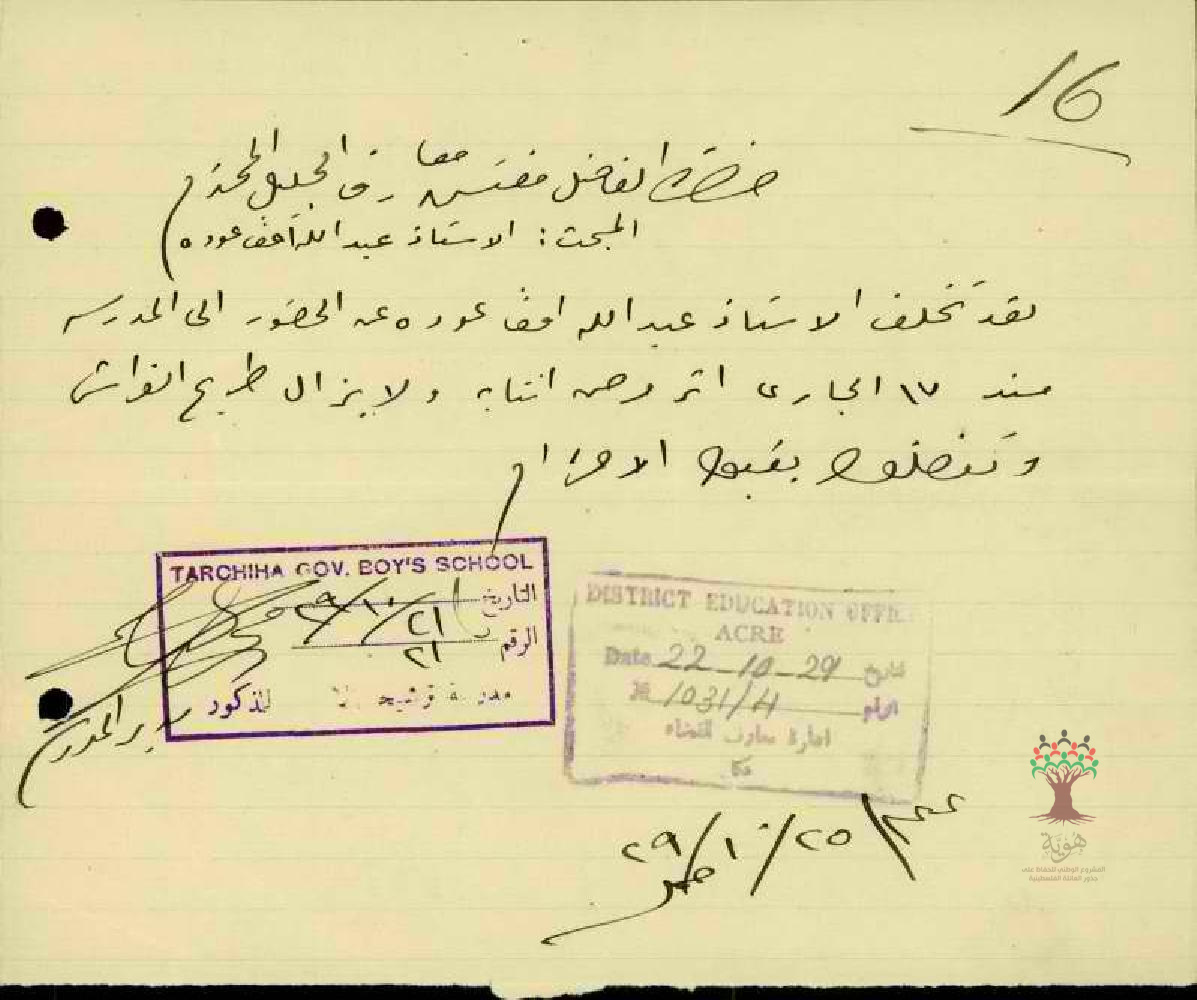 16
حضرة الفاضل مفتش معارف الجليل المحترم
المبحث : الاستاذ عبد الله افندي عوده
لقد تخلف الاستاذ عبد الله افندي عوده عن الحضور الى المدرسه
منذ ١٧ الجاري اثر مرض انتابه ولا يزال طريح الفراش
وتفضلوا بقبول الاحترام
TARCHIHA GOV. BOY'S SCHOOL
التاريخ ٢١/١٠/٢٩
الرقم ٢١
مدرسة ترشيحا للذكور
مدير المدرسة
DISTRICT EDUCATION OFFICE
ACRE
Date 22-10-29 تاريخ
№ 1031/4 الرقم
ادارة معارف القضاء
عكا
٢٥/١٠/٢٩
هُوِيَّة
المشروع الوطني للحفاظ على
جذور العائلة الفلسطينية